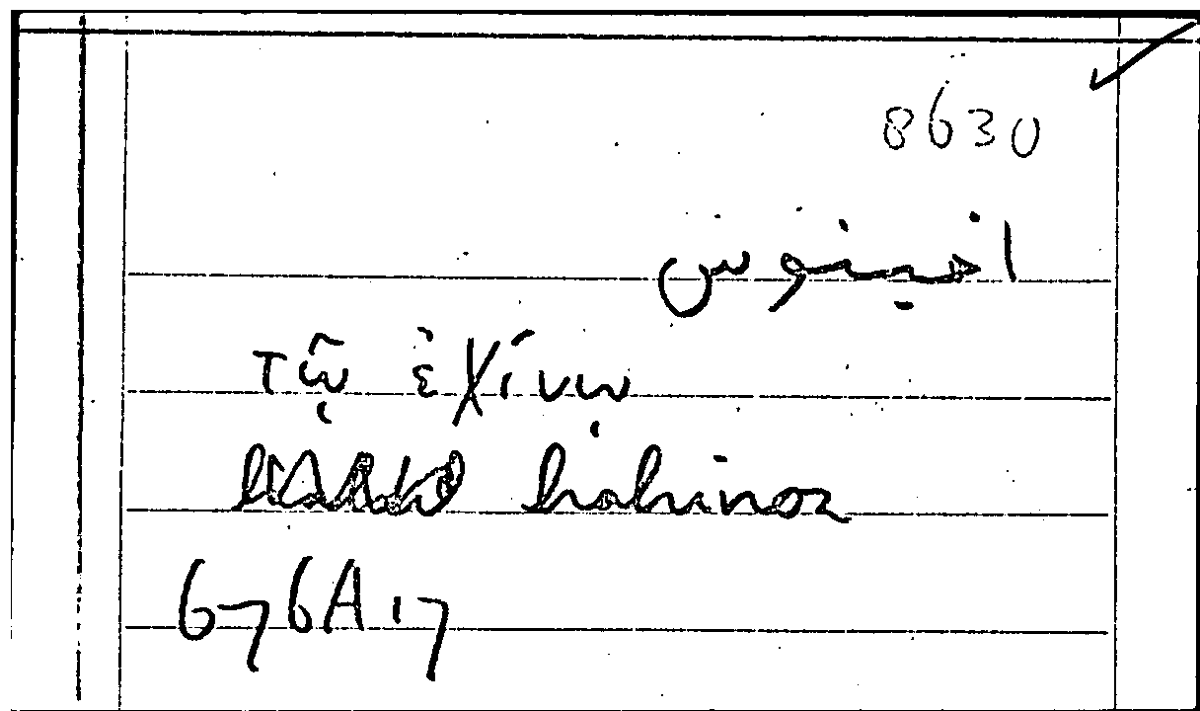 8630
اخينوس
τῷ ἐχίνῳ
hahinoz
676A17